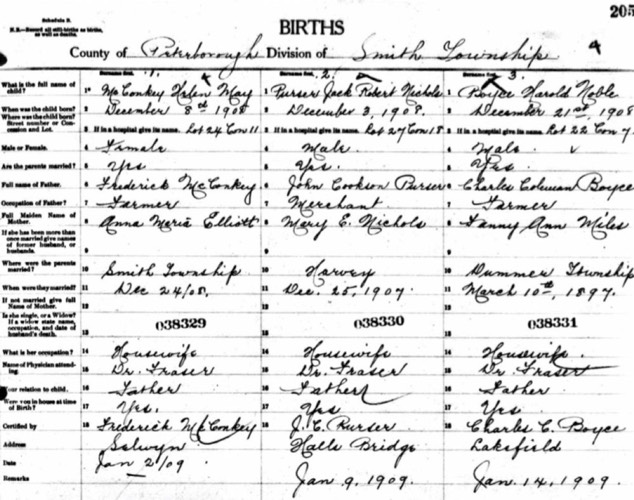 205
Schedule B.
N.B.—Record all still-births as births, as well as deaths.
BIRTHS
County of Peterborough Division of Smith Township 4
Surname first. 1. Surname first. 2. Surname first. 3.
What is the full name of child? 1 McConkey Helen May 1 Purser Jack Robert Nichols 1 Boyce Harold Noble
When was the child born? 2 December 8th 1908 2 December 3, 1908. 2 December 21st, 1908
Where was the child born? Street number or Concession and Lot. 3 If in a hospital give its name. Lot 24 Con 11 3 If in a hospital give its name. Lot 27 Con 18 3 If in a hospital give its name. Lot 22 Con 7
Male or Female. 4 Female 4 Male. 4 Male.
Are the parents married? 5 Yes 5 Yes. 5 Yes.
Full name of Father. 6 Frederick McConkey 6 John Cookson Purser 6 Charles Coleman Boyce
Occupation of Father? 7 Farmer 7 Merchant 7 Farmer
Full Maiden Name of Mother. 8 Anna Maria Elliott 8 Mary E. Nichols 8 Fanny Ann Miles
If she has been more than once married give names of former husband, or husbands. 9 9 9
Where were the parents married? 10 Smith Township 10 Harvey 10 Dummer Township
When were they married? 11 Dec 24/08. 11 Dec. 25, 1907. 11 March 10th, 1897.
If not married give full Name of Mother. 12 12
Is she single, or a Widow? If a widow state name, occupation, and date of husband's death. 13 038329 13 038330 13 038331
What is her occupation? 14 Housewife 14 Housewife 14 Housewife.
Name of Physician attending. 15 Dr. Fraser 15 Dr. Fraser 15 Dr. Fraser
Your relation to child. 16 Father 16 Father 16 Father
Were you in house at time of Birth? 17 Yes. 17 Yes 17 Yes
Certified by 18 Frederick McConkey 18 J. C. Purser 18 Charles C. Boyce
Address Selwyn. Halls Bridge Lakefield
Date Jan 2/09
Remarks Jan. 9, 1909. Jan. 14, 1909.